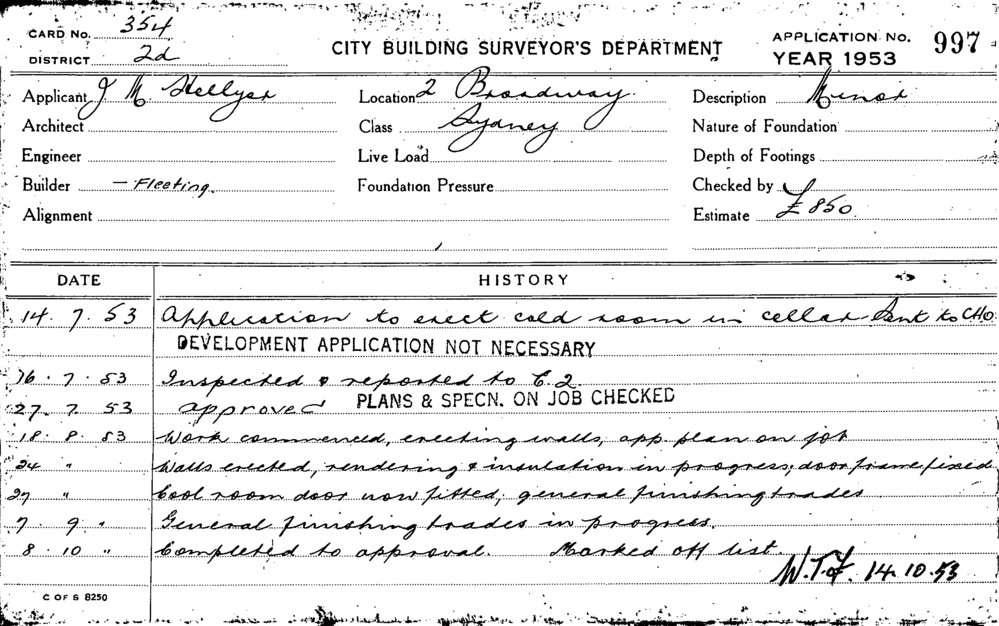 CARD No. 354
DISTRICT 2d
CITY BUILDING SURVEYOR'S DEPARTMENT
APPLICATION No. 997
YEAR 1953
Applicant J M Hellyer
Location 2 Broadway
Description Minor
Architect
Class Sydney
Nature of Foundation
Engineer
Live Load
Depth of Footings
Builder — Fleeting.
Foundation Pressure
Checked by
Alignment
Estimate £850
DATE HISTORY
14. 7. 53 Application to erect cold room in cellar Sent to CHO.
DEVELOPMENT APPLICATION NOT NECESSARY
16. 7. 53 Inspected & reported to C.2.
27. 7. 53 approved PLANS & SPECN. ON JOB CHECKED
18. 8. 53 Work commenced, erecting walls, app. plan on job
24 " Walls erected, rendering & insulation in progress; door frame fixed
27 " Cool room door now fitted, general finishing trades
7. 9. " General finishing trades in progress.
8. 10 " Completed to approval. Marked off list.
W.T.F. 14.10.53
C OF S 8250